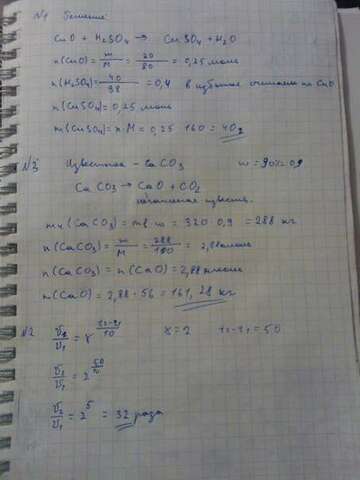 №1 Решение:
CuO + H2SO4 → CuSO4 + H2O
n(CuO) = m/M = 20/80 = 0,25 моль
n(H2SO4) = 40/98 = 0,4 в избытке считаем по CuO
n(CuSO4) = 0,25 моль
m(CuSO4) = n·M = 0,25 · 160 = 40г
№3 Известняк - CaCO3 w = 90% = 0,9
CaCO3 → CaO + CO2
негашеная известь
mч(CaCO3) = mв·w = 320·0,9 = 288 кг
n(CaCO3) = m/M = 288/100 = 2,88 кмоль
n(CaCO3) = n(CaO) = 2,88 кмоль
n(CaO) = 2,88 · 56 = 161,28 кг
№2 V2/V1 = γ^(t2-t1)/10 γ = 2 t2-t1 = 50
V2/V1 = 2^50/10
V2/V1 = 2^5 = 32 раза